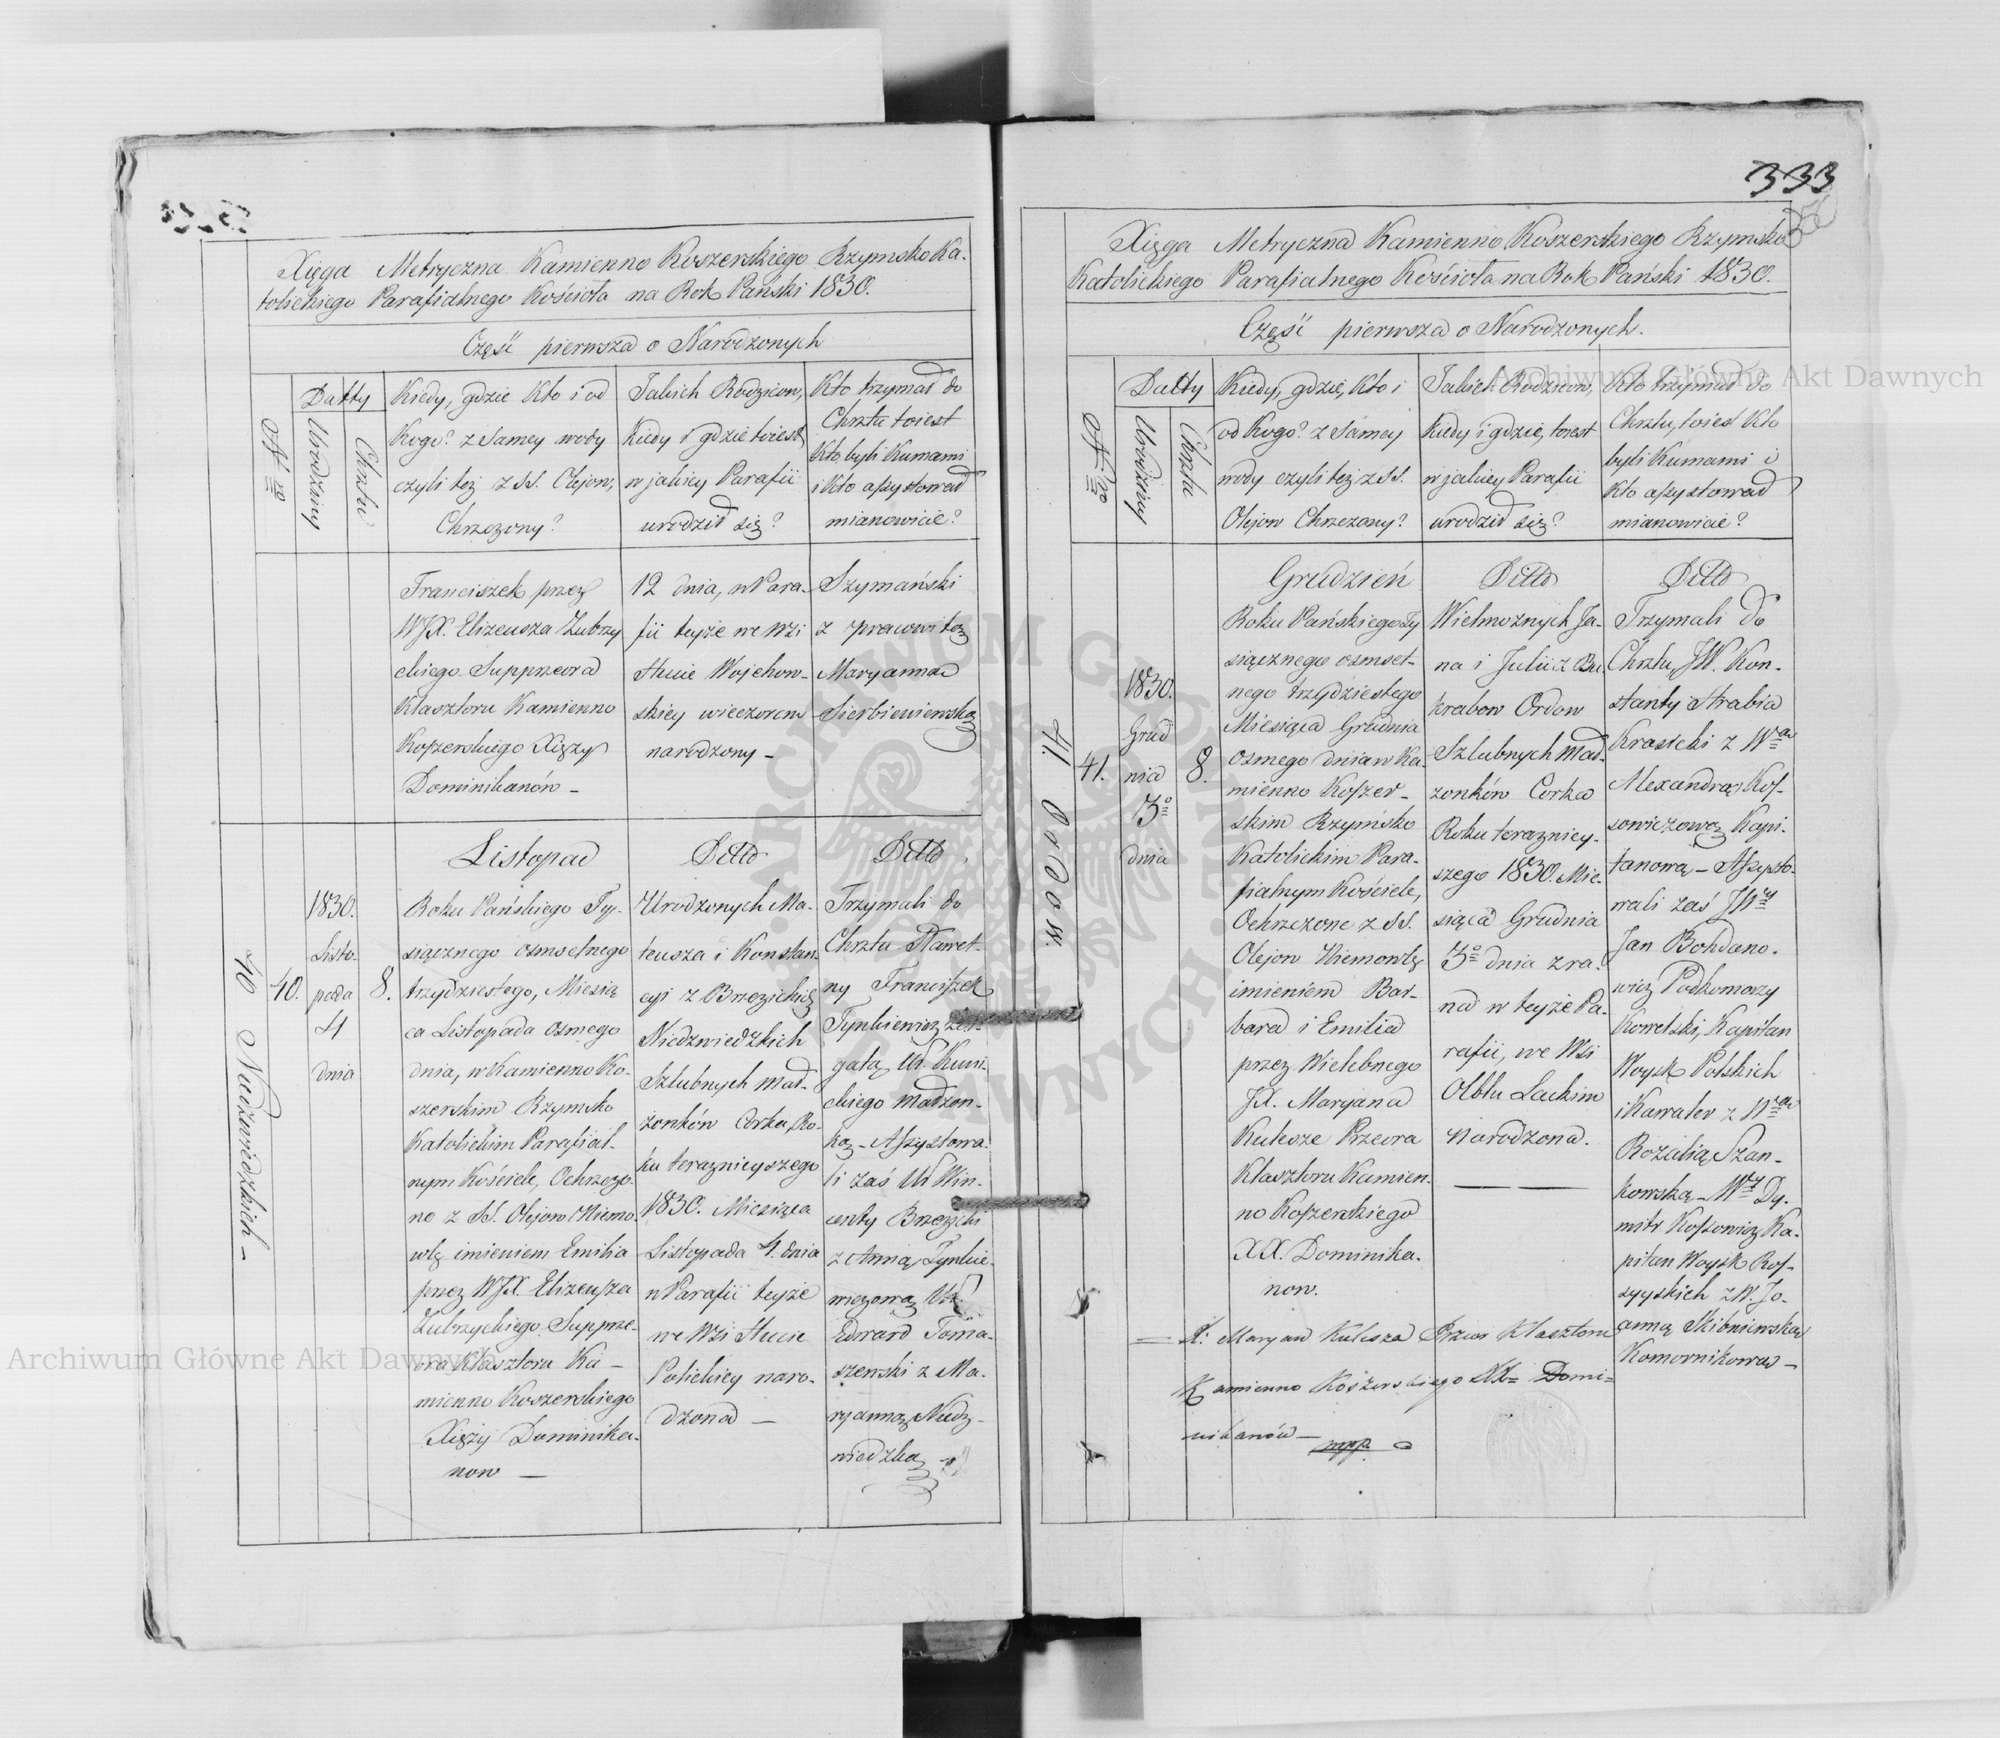 333
Xięga Metryczna Kamienno Koszerskiego Rzymsko Ka-
tolickiego Parafialnego Kościoła na Rok Pański 1830.
Część pierwsza o Narodzonych
Nro
Datty
Urodziny
Chrztu
Kiedy, gdzie Kto i od
Kogo? z samey wody
czyli też z SS. Olejow,
Chrzczony?
Jakich Rodzicow,
Kiedy i gdzie toiest
w jakiey Parafii
urodził się?
Kto trzymał do
Chrztu toiest
Kto byli Kumami
i Kto assystował
mianowicie?
Franciszek przez
WJX. Elizeusza Zubrzy
ckiego Supprzeora
Klasztoru Kamienno
Koszerskiego Xięży
Dominikanów –
12 dnia, w Para-
fii teyże we Wsi
Hucie Woychow-
skiey wieczorem
narodzony –
Szymański
z pracowitą
Maryanną
Sierbieniewską
40 Niedzwiedzkich –
40.
1830.
Listo-
pada
4
dnia
8.
Listopad
Roku Pańskiego Ty-
siącznego osmsetnego
trzydziestego, Miesią
ca Listopada osmego
dnia, w Kamienno Ko-
szerskim Rzymsko
Katolickim Parafial-
nym Kościele, Ochrzczo-
no z SS. Olejow Niemo-
wlę imieniem Emilia
przez WJX. Elizeusza
Zubrzyckiego Supprze-
ora Klasztoru Ka-
mienno Koszerskiego
Xięży Dominika-
now –
Ditto
Urodzonych Ma-
teusza i Konstan-
cyi z Brzezickich
Niedzwiedzkich
Szlubnych mał-
żonków Corka, Ro-
ku teraznieyszego
1830. Miesiąca
Listopada 4. dnia
w Parafii teyże
we Wsi Hucie
Polickiey naro-
dzona –
Ditto
Trzymali do
Chrztu Szlachet-
ny Franciszek
Tynkiewicz z
gatą Ur. Kuni-
ckiego małżon-
ką – Assystowa-
li zaś Ur Win-
centy Brzezicki
z Anną Tynkie-
wiczową Ur.
Edward Toma-
szewski z Ma-
ryanną Niedz-
wiedzką
Xięga Metryczna Kamienno Koszerskiego Rzymsko
Katolickiego Parafialnego Kościoła na Rok Pański 1830.
Część pierwsza o Narodzonych.
Nro
Datty
Urodziny
Chrztu
Kiedy, gdzie, Kto i
od Kogo? z samey
wody czyli też z SS.
Olejow Chrzczony?
Jakich Rodzicow,
Kiedy i gdzie, toiest
w jakiey Parafii
urodził się?
Kto trzymał do
Chrztu, toiest Kto
byli Kumami i
Kto assystował
mianowicie?
41. Ordow.
41.
1830.
Grud
nia
3o
dnia
8.
Grudzień
Roku Pańskiego Ty
siącznego osmset-
nego trzydziestego
Miesiąca Grudnia
osmego dnia w Ka-
mienno Koszer-
skim Rzymsko
Katolickim Para-
fialnym Kościele,
Ochrzczone z SS.
Olejow Niemowlę
imieniem Bar-
bara i Emilia
przez Wielebnego
JX. Maryana
Kulesze Przeora
Klasztoru Kamien-
no Koszerskiego
XX. Dominika-
now.
Ditto
Wielmożnych Ja-
na i Julii z Bu
krabow Ordow
Szlubnych mał-
żonków Corka
Roku teraźniey-
szego 1830. Mie-
siąca Grudnia
3o dnia z ra-
na w teyże Pa-
rafii, we Wsi
Olblu Lackim
Narodzona.
Ditto
Trzymali do
Chrztu, JW. Kon-
stanty Hrabia
Krasicki z Wną
Alexandrą Kos-
sowiczową Kapi-
tanową – Assysto-
wali zaś JWny
Jan Bohdano-
wicz Podkomorzy
Kowelski, Kapitan
Woysk Polskich
i Kawaler z Wną
Rozalią Szan-
kowską – Wny Dy-
mitr Kossowicz Ka-
pitan Woysk Ros-
syyskich z W. Jo-
anną Skibniewską
Komornikową –
X: Maryan Kulesza Przeor Klasztoru
Kamienno Koszerskiego XX= Domi=
nikanów – mpp.
Archiwum Główne Akt Dawnych
Archiwum Główne Akt Dawnych
ARCHIWUM GŁÓWNE AKT DAWNYCH